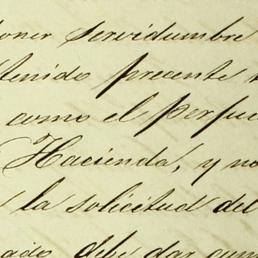 oner servidumbre
tenido presente
como el perju
Hacienda, y no
la solicitud del
debe dar